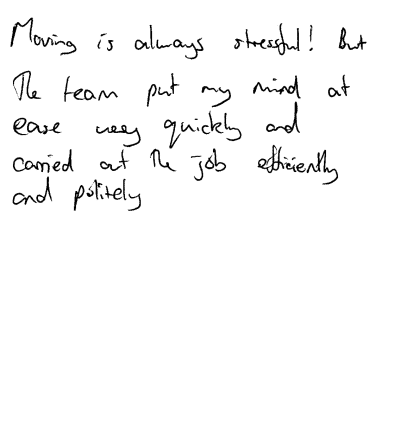 Moving is always stressful! But
the team put my mind at
ease very quickly and
carried out the job efficiently
and politely